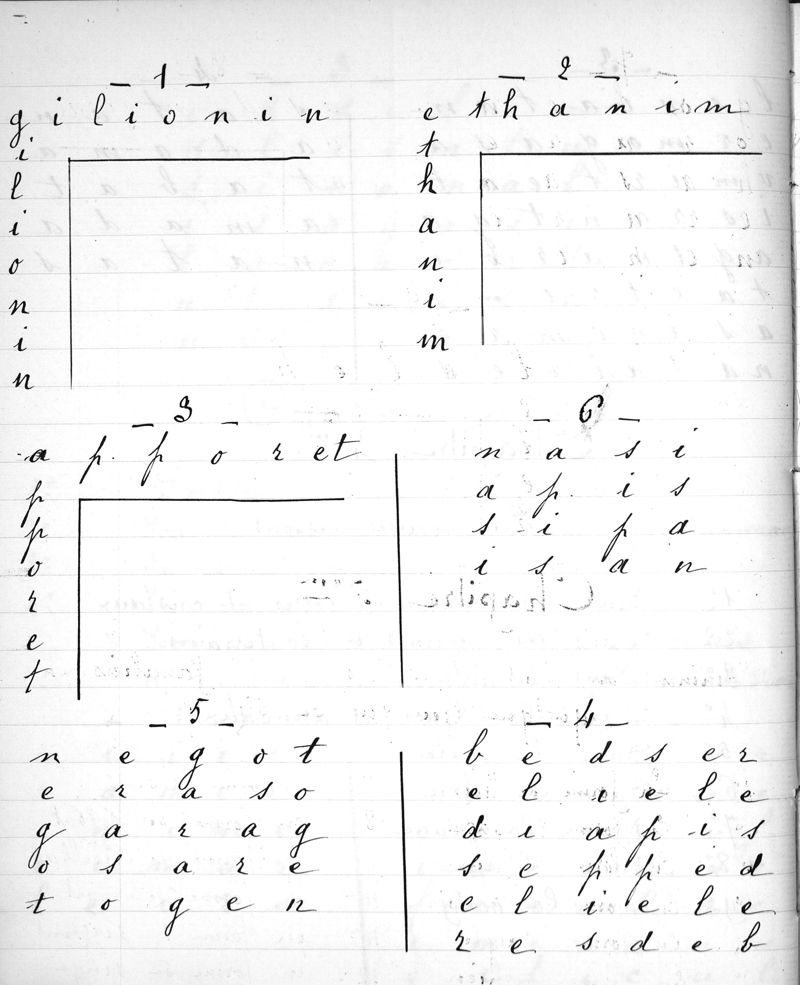 — 1 —
g i l i o n i n
i
l
i
o
n
i
n
— 2 —
e t h a n i m
t
h
a
n
i
m
— 3 —
a p p o r e t
p
p
o
r
e
t
— 6 —
n a s i
a p i s
s i p a
i s a n
— 5 —
n e g o t
e r a s o
g a r a g
o s a r e
t o g e n
— 4 —
b e d s e r
e l i e l e
d i a p i s
s e p p e d
e l i e l e
r e s d e b